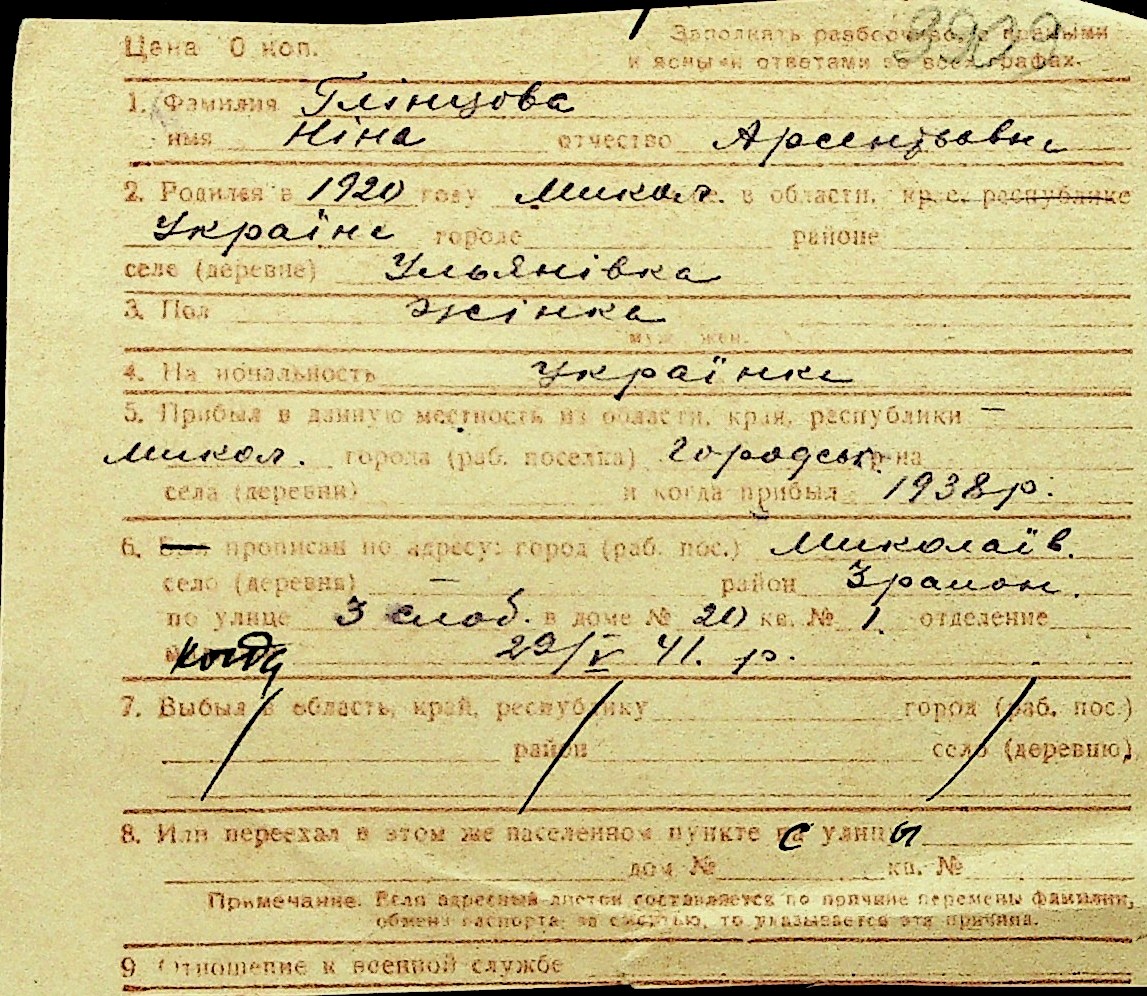 Цена 0 коп.
Заполнять разборчиво, с прямыми
и ясными ответами во всех графах.
1. Фамилия Глінцова
имя Ніна отчество Арсентьовна
2. Родился в 1920 году Микол. в области, крае, республике
Україна городе районе
селе (деревне) Ульянівка
3. Пол жінка
муж., жен.
4. Национальность українка
5. Прибыл в данную местность из области, края, республики —
Микол. города (раб. поселка) Городськ. р-на
села (деревни) и когда прибыл 1938 р.
6. прописан по адресу: город (раб. пос.) Миколаїв.
село (деревня) — район 3 район.
по улице 3 слоб. в доме № 20 кв. № 1 отделение
когда 29/V 41. р.
7. Выбыл в область, край, республику город (раб. пос.)
район село (деревню)
8. Или переехал в этом же населенном пункте с улицы
дом № кв. №
Примечание. Если адресный листок составляется по причине перемены фамилии,
обмена паспорта, за смертью, то указывается эта причина.
9. Отношение к военной службе